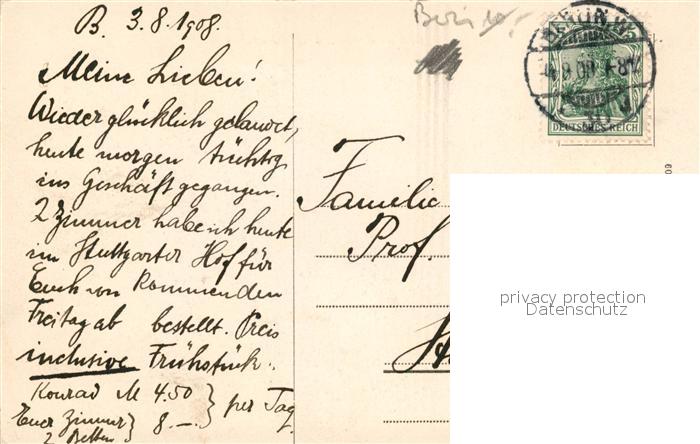 B. 3.8.1908.
Meine Lieben!
Wieder glücklich gelandet,
heute morgen tüchtig
ins Geschäft gegangen.
2 Zimmer habe ich heute
im Stuttgarter Hof für
Euch von Kommenden
Freitag ab bestellt. Preis
inclusive Frühstück.
Konrad M 4.50 } per Tag
Euer Zimmer } 8.—
2 Betten
Familie
Prof.
BERLIN W
DEUTSCHES REICH
privacy protection
Datenschutz